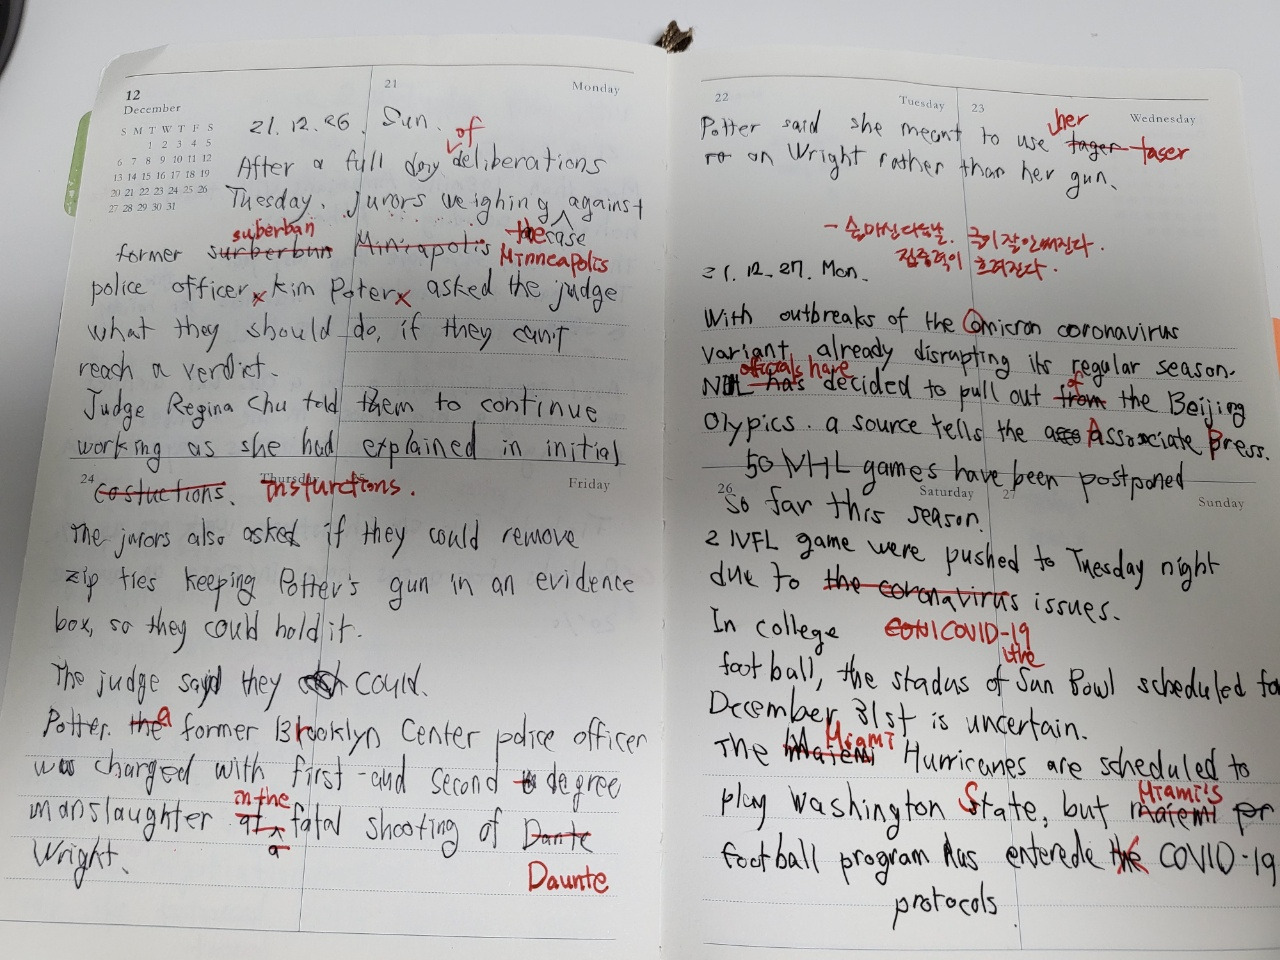 12
December
S M T W T F S
1 2 3 4 5
6 7 8 9 10 11 12
13 14 15 16 17 18 19
20 21 22 23 24 25 26
27 28 29 30 31
21 Monday
21.12.26. Sun.
of
After a full day deliberations
Tuesday. Jurors weighing against
suberban the case
former surberbun Minieapolis Minneapolis
police officer x Kim Poter x asked the judge
what they should do, if they can't
reach a verdict.
Judge Regina Chu told them to continue
working as she had explained in initial
24 Thursday Friday
costuctions. insturctions.
The jurors also asked if they could remove
zip ties keeping Potter's gun in an evidence
box, so they could hold it.
The judge said they could.
Potter. the a former Brooklyn Center police officer
was charged with first-and second degree
in the
manslaughter at a fatal shooting of Dante
Wright.
Daunte
22 Tuesday 23 Wednesday
her
Potter said she meant to use tager taser
on Wright rather than her gun.
- 술마신 다음날. 글이 잘 안써진다.
집중력이 흐려진다.
21.12.27. Mon.
With outbreaks of the Omicron coronavirus
variant already disrupting its regular season.
officials have of
NHL has decided to pull out from the Beijing
Olypics. a source tells the Assosciate Press.
50 NHL games have been postponed
26 Saturday 27 Sunday
so far this season.
2 NFL game were pushed to Tuesday night
due to the coronavirus issues.
In college COVID-19
the
football, the stadus of Sun Bowl scheduled for
December 31st is uncertain.
Miami
The Maiemi Hurricanes are scheduled to
Miami's
play Washington State, but maiemi
football program has enterede the COVID-19
protocols.